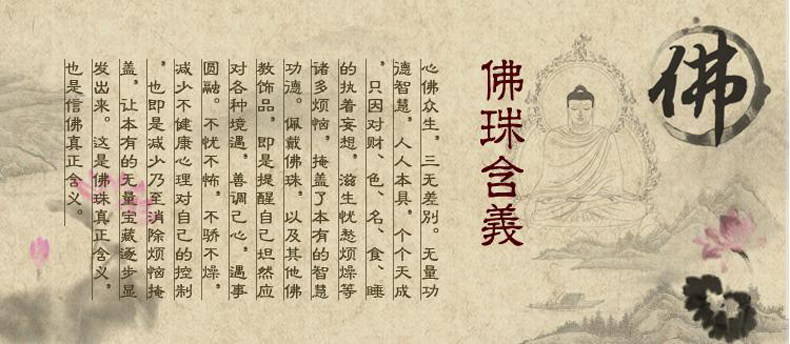 佛
佛珠含義
心佛众生，三无差别。无量功
德智慧，人人本具，个个天成
，只因对财、色、名、食、睡
的执着妄想，滋生忧愁烦燥等
诸多烦恼，掩盖了本有的智慧
功德。佩戴佛珠，以及其他佛
教饰品，即是提醒自己坦然应
对各种境遇，善调己心，遇事
圆融。不忧不怖，不骄不燥，
减少不健康心理对自己的控制
，也即是减少乃至消除烦恼掩
盖，让本有的无量宝藏逐步显
发出来。这是佛珠真正含义，
也是信佛真正含义。